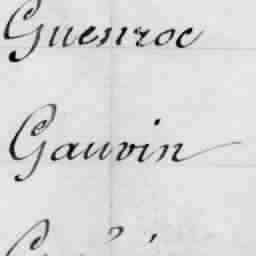 Guenroc
Gauvin